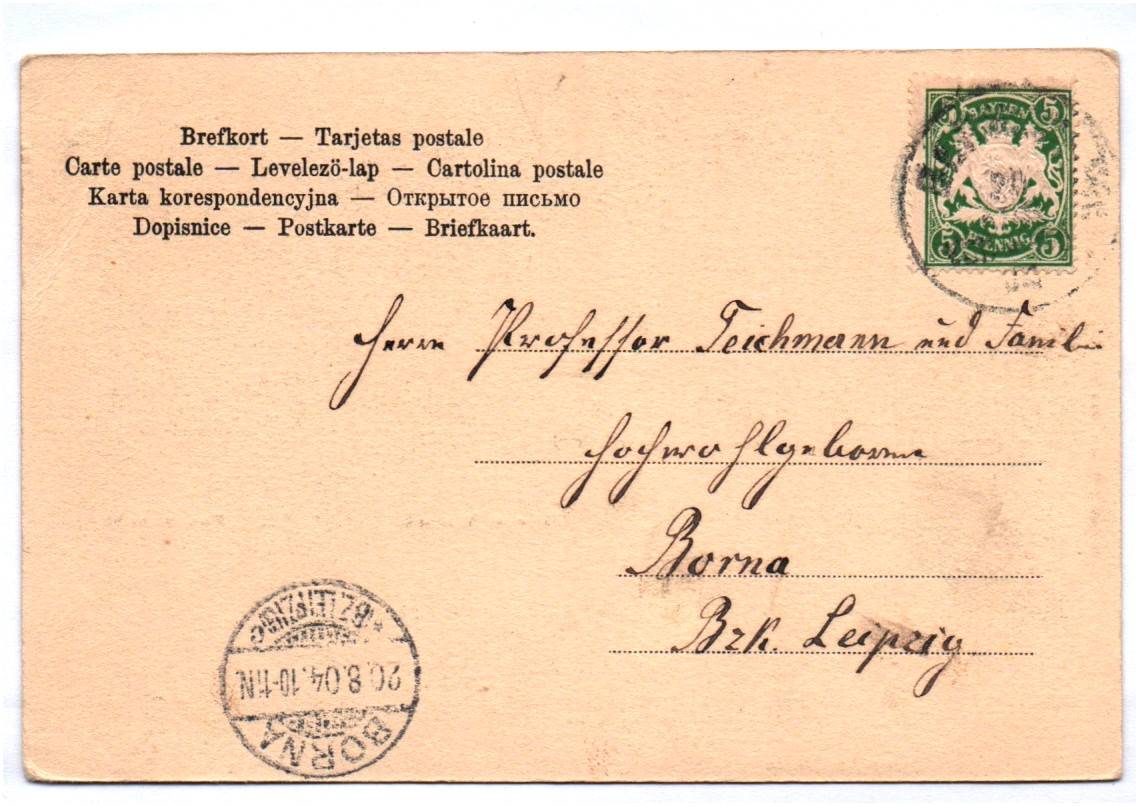 Brefkort — Tarjetas postale
Carte postale — Levelezö-lap — Cartolina postale
Karta korespondencyjna — Открытое письмо
Dopisnice — Postkarte — Briefkaart.
5 BAYERN 5
5 PFENNIG 5
Herrn Professor Teichmann und Famili
Hochwohlgeboren
Borna
Bzk. Leipzig
BORNA
20.8.04.10-11N.
*BZ.LEIPZIG